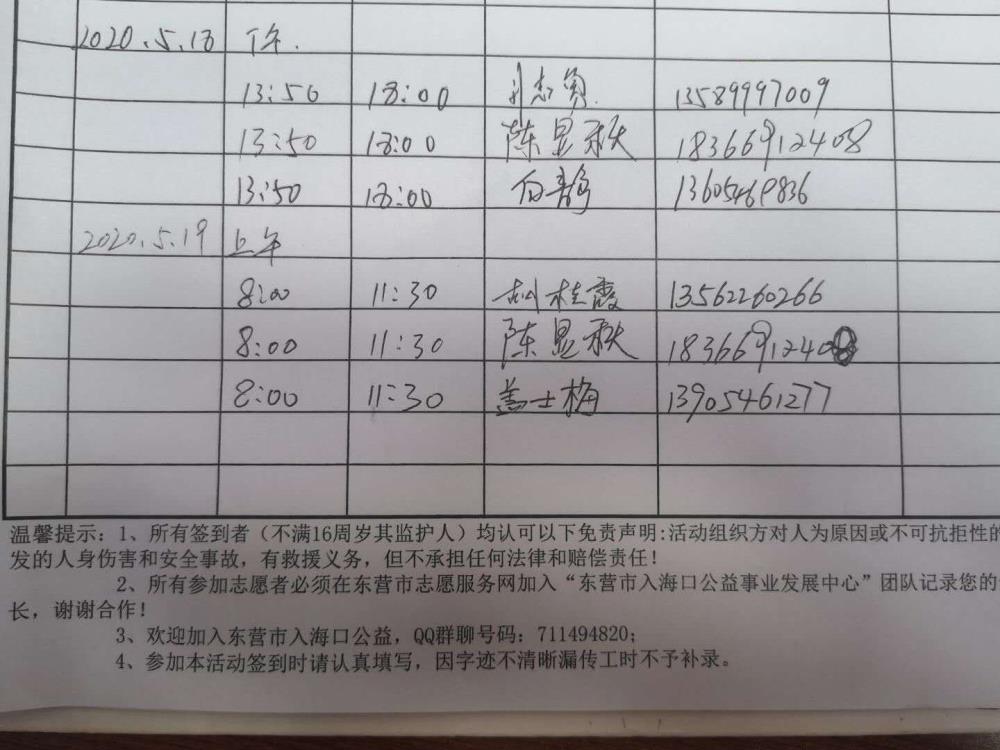 2020.5.18 下午.
13:50 18:00 志勇 13589997009
13:50 18:00 陈显秋 18366912408
13:50 18:00 白静 13605469836
2020.5.19 上午
8:00 11:30 胡桂霞 13562260266
8:00 11:30 陈显秋 18366912408
8:00 11:30 盖士梅 13905461277
温馨提示：1、所有签到者（不满16周岁其监护人）均认可以下免责声明：活动组织方对人为原因或不可抗拒性的
发的人身伤害和安全事故，有救援义务，但不承担任何法律和赔偿责任！
2、所有参加志愿者必须在东营市志愿服务网加入“东营市入海口公益事业发展中心”团队记录您的
长，谢谢合作！
3、欢迎加入东营市入海口公益，QQ群聊号码：711494820；
4、参加本活动签到时请认真填写，因字迹不清晰漏传工时不予补录。